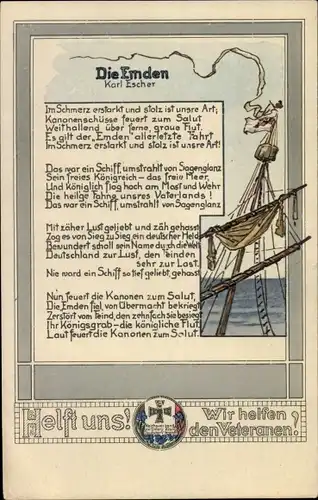 Die Emden
Karl Escher
Im Schmerz erstarkt und stolz ist unsre Art;
Kanonenschüsse feuert zum Salut
Weithallend über ferne, graue Flut.
Es gilt der „Emden“ allerletzte Fahrt
Im Schmerz erstarkt und stolz ist unsre Art!
Das war ein Schiff, umstrahlt von Sagenglanz
Sein freies Königreich – das freie Meer,
Und königlich flog hoch am Mast und Wehr
Die heilge Fahne unsres Vaterlands!
Das war ein Schiff, umstrahlt von Sagenglanz
Mit zäher Lust geliebt und zäh gehasst
Zog es von Sieg zu Sieg ein deutscher Held
Bewundert scholl sein Name durch die Welt
Deutschland zur Lust, den Feinden
sehr zur Last.
Nie ward ein Schiff so tief geliebt, gehasst
Nun feuert die Kanonen zum Salut,
Die Emden fiel von Übermacht bekriegt
Zerstört vom Feind, den zehnfach sie besiegt
Ihr Königsgrab – die königliche Flut,
Laut feuert die Kanonen zum Salut.
Helft uns! Wir helfen
den Veteranen!